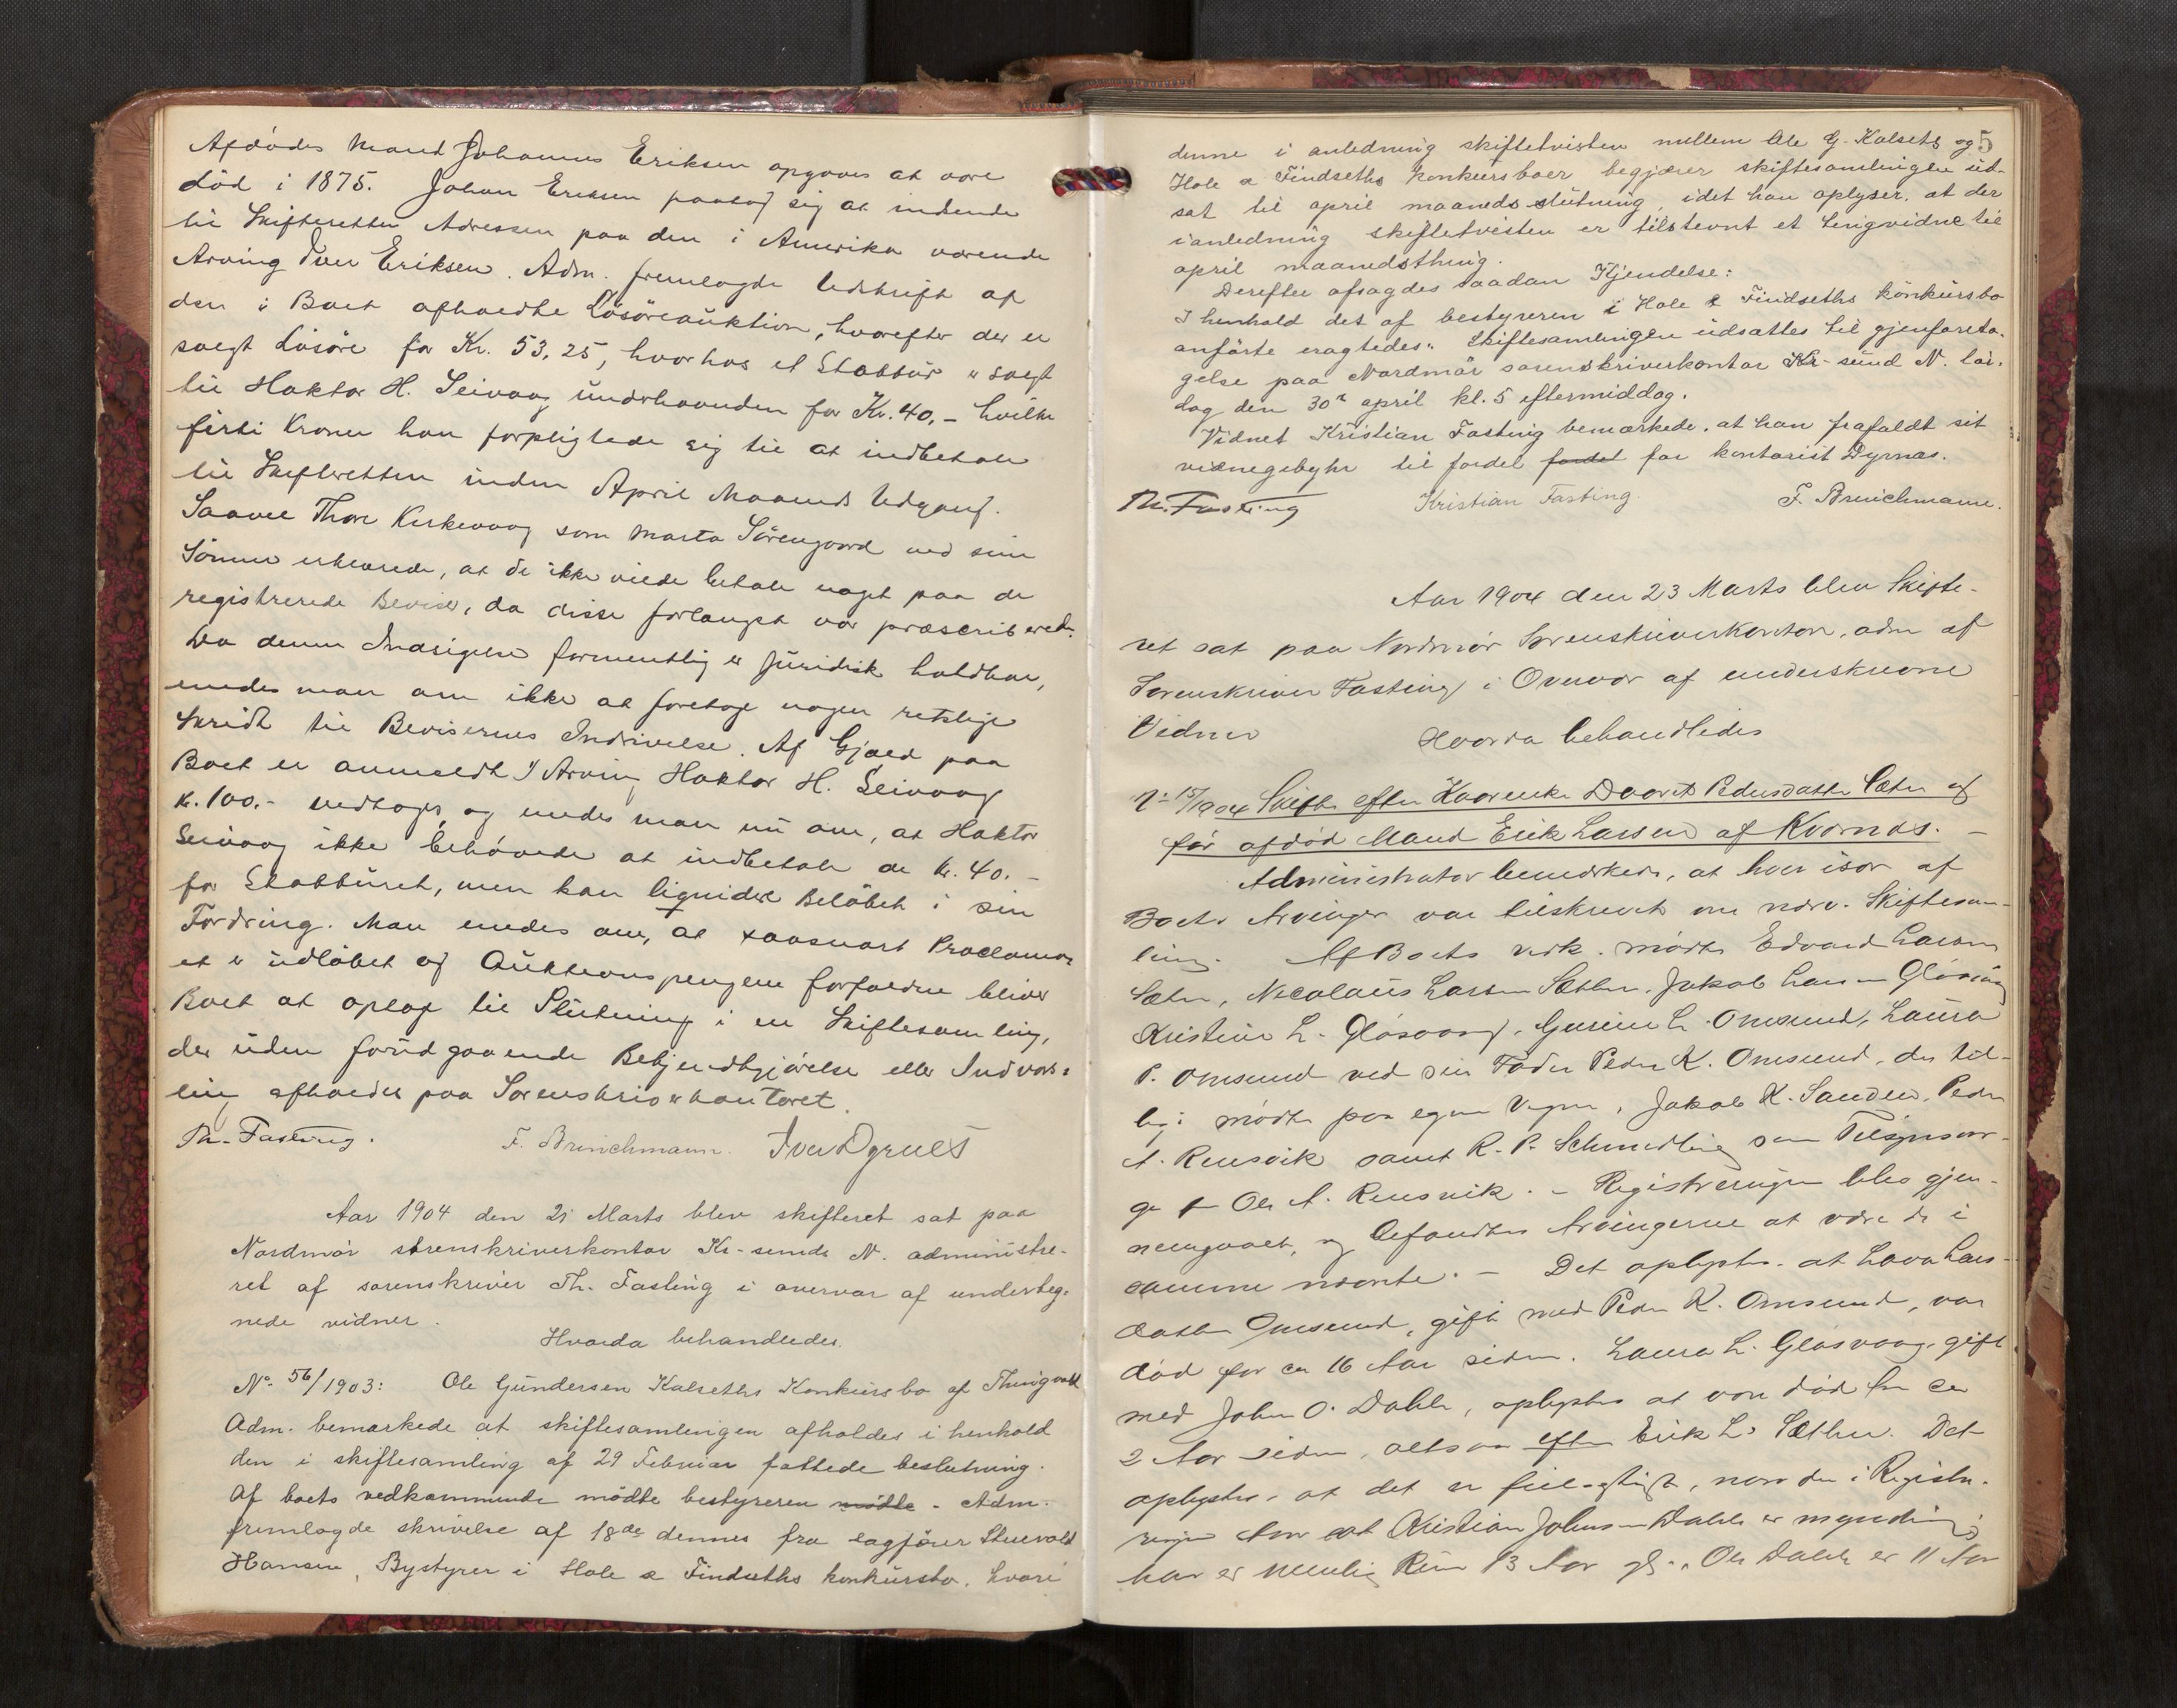 Afdödes Mand Johannes Eriksen opgaves at være
död i 1875. Johan Eriksen paatog sig at indsende
til Skifteretten Adressen paa den i Amerika værende
Arving Iver Eriksen. Adm. fremlagde Udskrift af
den i Boet afholdte Lösöreauktion, hvorefter der er
solgt Lösöre for Kr. 53,25, hvorhos et Stabbur er solgt
til Haktor H. Seivaag underhaanden for Kr. 40.- hvilke
firti Kroner han forpligtede sig til at indbetale
til Skifteretten inden April Maaneds Udgang.
Saavel Thore Kirkevaag som Marta Sörengaard ved sine
Sönner erklærede, at de ikke vilde betale noget paa de
registrerede Beviser, da disse forlængst var præscriberede.
Da denne Indsigelse formentlig er juridisk holdbar,
enedes man om ikke at foretage nogen retslige
Skridt til Bevisernes Inddrivelse. Af Gjæld paa
Boet er anmeldt 1/ Arving Haktor H. Seivaag
Kr. 100.- vedtoges, og enedes man nu om, at Haktor
Seivaag ikke behövede at indbetale de Kr. 40.-
for Stabburet, men kan liquidere Belöbet i sin
Fordring. Man enedes om, at saasnart Proclama-
et er udlöbet og Auktionspengene forfaldne bliver
Boet at optage til Slutning i en Skiftesamling,
der uden forudgaaende Bekjendtgjörelse eller Indvars-
ling afholdes paa Sorenskriverkontoret.
Th. Fasting. F. Brinchmann. Iver Dyrnes
Aar 1904 den 21 Marts blev skifteret sat paa
Nordmör sorenskriverkontor Kr-sunds N. administre-
ret af sorenskriver Th. Fasting i overvær af underteg-
nede vidner.
Hvorda behandledes.
No. 56/1903: Ole Gundersen Kalseths Konkursbo af Thingvold
Adm. bemærkede at skiftesamlingen afholdes i henhold
den i skiftesamling af 29 Februar fattede beslutning.
Af boets vedkommende mödte bestyreren mödte. Adm.
fremlagde skrivelse af 18de dennes fra sagförer Stuevold
Hansen, Bystyrer i Hole & Findseths konkursbo, hvori
5
denne i anledning skiftetvisten mellem Ole G. Kalseths og
Hole & Findseths konkursboer begjærer skiftesamlingen ud-
sat til april maaneds slutning, idet han oplyser, at der
i anledning skiftetvisten er tilstevnt et tingvidne til
april maanedsthing.
Derefter afsagdes saadan Kjendelse:
I henhold det af bestyreren i Hole & Findseths konkursbo
anförte eragtedes: Skiftesamlingen udsattes til gjenforeta-
gelse paa Nordmör sorenskriverkontor Kr-sund N. lör-
dag den 30te april kl. 5 eftermiddag.
Vidnet Kristian Fasting bemærkede, at han frafaldt sit
vidnegebyhr til fordel fordel for kontorist Dyrnæs.
Th. Fasting Kristian Fasting. F. Brinchmann.
Aar 1904 den 23 Marts blev Skifte-
ret sat paa Nordmör Sorenskriverkontor, adm af
Sorenskriver Fasting i Overvær af underskrevne
Vidner Hvorda behandledes
No 15/1904 Skifte efter Kaarenke Daaret Pedersdatter Sæter og
för afdöd Mand Erik Larsen af Kvernæs. -
Administrator bemærkede, at hver især af
Boets Arvinger var tilskrevet om nærv. Skiftesam-
ling. Af Boets vedk. mödte Edvard Larsen
Sæter, Nicolaus Larsen Sæther, Jakob Larsen Glösvaag
Kristine L. Glösvaag, Gurine L. Omsund, Laura
P. Omsund ved sin Fader Peder K. Omsund, der til-
lige mödte paa egne Vegne, Jakob K. Sanden, Peder
A. Rensvik samt R. P. Schmedling som Tilsynsvær-
ge f. Ole A. Rensvik. - Registreringen blev gjen-
nemgaaet, og befandtes Arvingerne at være de i
samme nævnte. - Det oplystes, at Lava Lars-
datter Omsund, gift med Peder K. Omsund, var
död for ca 16 Aar siden. Laura L. Glösvaag, gift
med John O. Dahle, oplystes at være död for ca
2 Aar siden, altsaa efter Erik L. Sæther. Det
oplystes, at det er feilagtigt, naar der i Registre-
ringen staar at Kristian Johnsen Dahle er myndig;
han er nemlig kun 13 Aar gl., Ole Dahle er 11 Aar